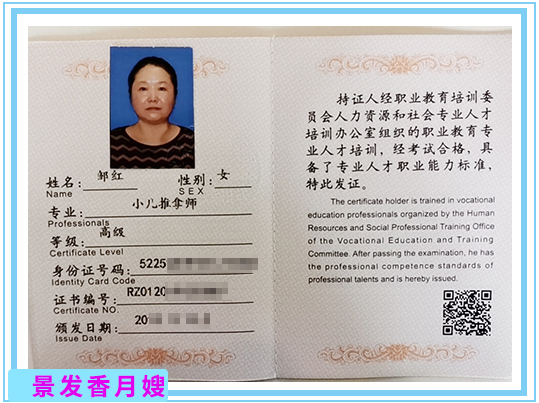 姓名：邹红 性别：女
Name SEX
专业：小儿推拿师
Professionals
等级：高级
Certificate Level
身份证号码：5225
Identity Card Code
证书编号：RZ0120
Certificate NO.
颁发日期：20
Issue Date
持证人经职业教育培训委
员会人力资源和社会专业人才
培训办公室组织的职业教育专
业人才培训，经考试合格，具
备了专业人才职业能力标准，
特此发证。
The certificate holder is trained in vocational
education professionals organized by the Human
Resources and Social Professional Training Office
of the Vocational Education and Training
Committee. After passing the examination, he has
the professional competence standards of
professional talents and is hereby issued.
景发香月嫂